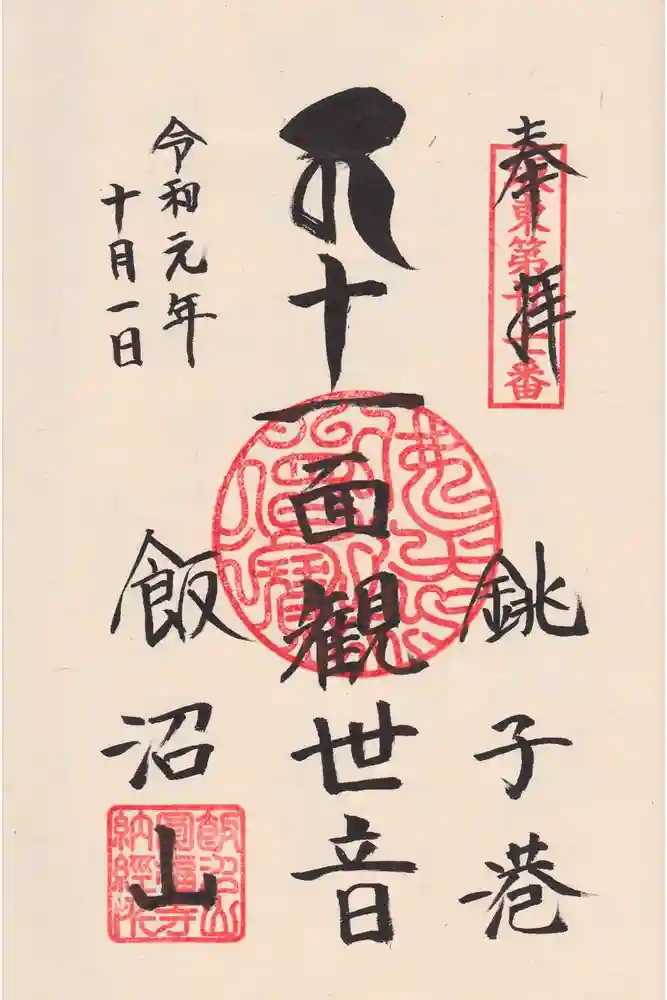 奉拝
坂東第廿七番
銚子港
十一面観世音
飯沼山
飯沼山
圓福寺
納経所
令和元年
十月一日